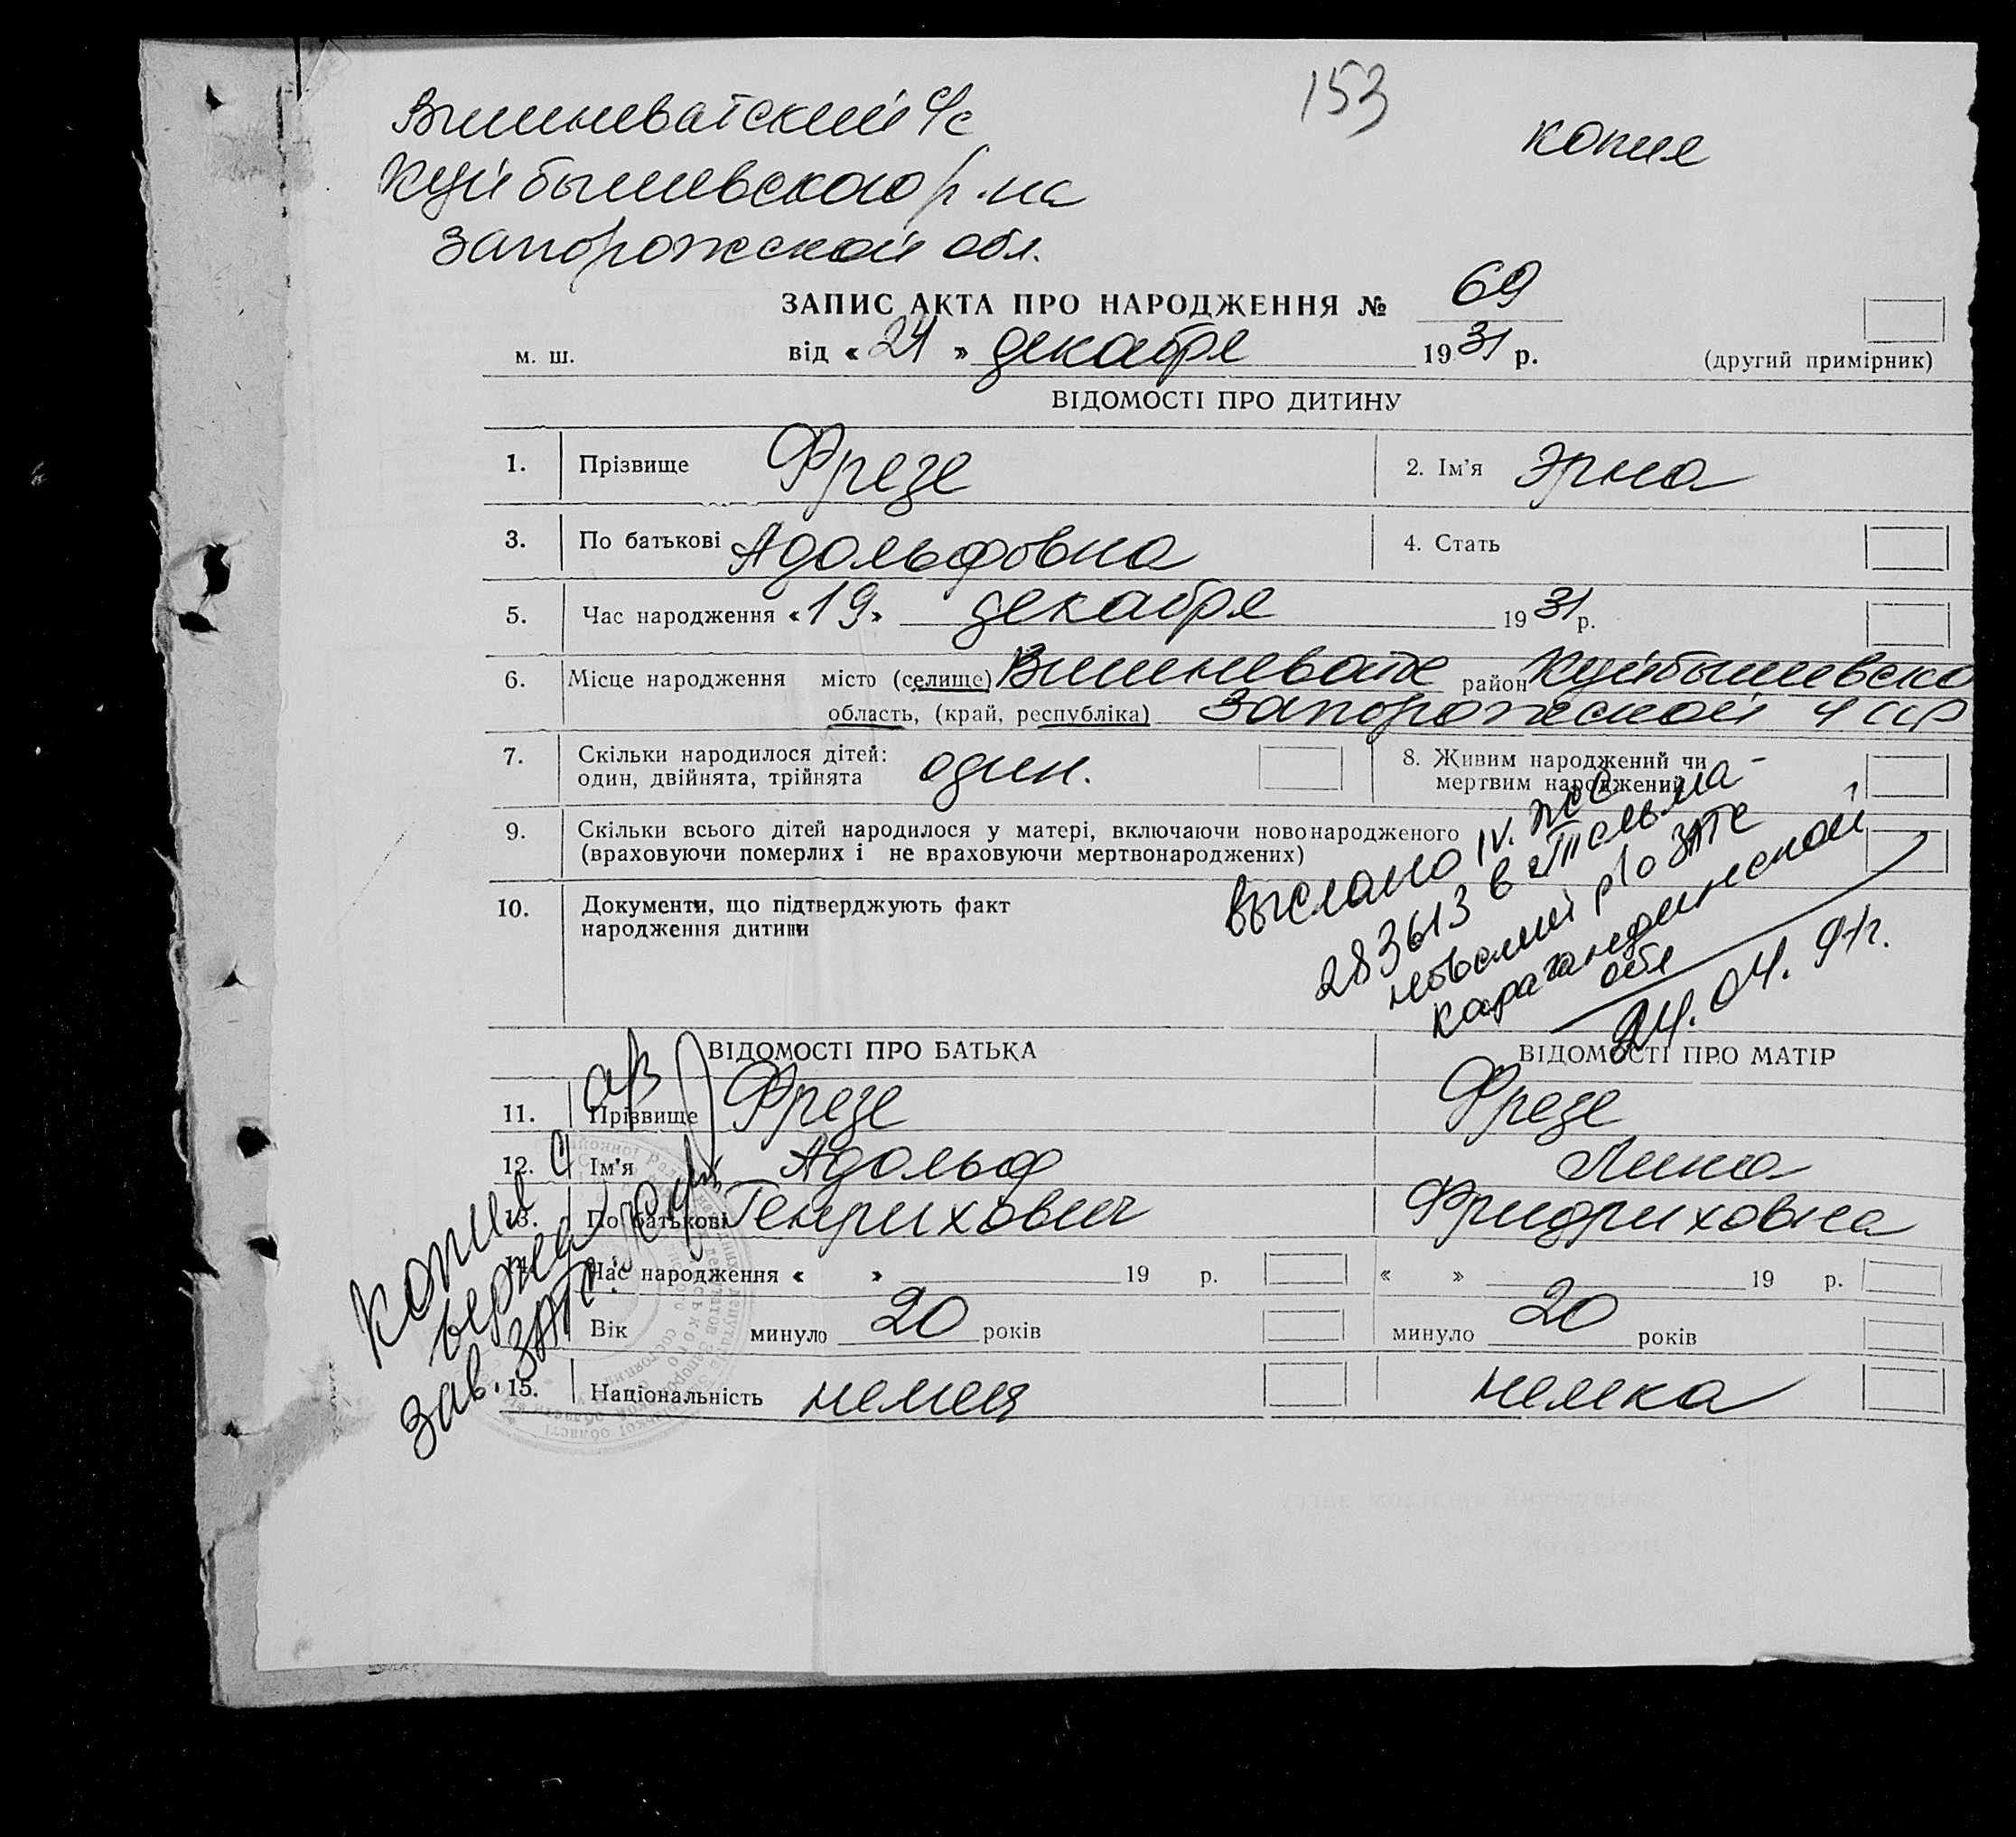 153
копия
Вишневатский с/с
Куйбышевского р-на
Запорожской обл.
ЗАПИС АКТА ПРО НАРОДЖЕННЯ № 69
м. ш. від « 24 » декабря 1931 р. (другий примірник)
ВІДОМОСТІ ПРО ДИТИНУ
1. Прізвище Фрезе 2. Ім’я Эрна
3. По батькові Адольфовна 4. Стать
5. Час народження «19» декабря 1931 р.
6. Місце народження місто (селище) Вишневате район Куйбышевско
область, (край, республіка) Запорожской УССР
7. Скільки народилося дітей: один.
один, двійнята, трійнята
8. Живим народжений чи
мертвим народжений
9. Скільки всього дітей народилося у матері, включаючи новонародженого
(враховуючи померлих і не враховуючи мертвонароджених)
10. Документи, що підтверджують факт
народження дитини
выслано IV.
283613 в Тельма-
новский р/о ЗАГС
Карагандинской
обл
24.04.91г.
ВІДОМОСТІ ПРО БАТЬКА ВІДОМОСТІ ПРО МАТІР
11. Прізвище Фрезе Фрезе
12. Ім’я Адольф Лина
13. По батькові Генрихович Фридриховна
Час народження « » 19 р. « » 19 р.
Вік минуло 20 років минуло 20 років
15. Національність немец немка
Копия
верна
зав. ЗАГС